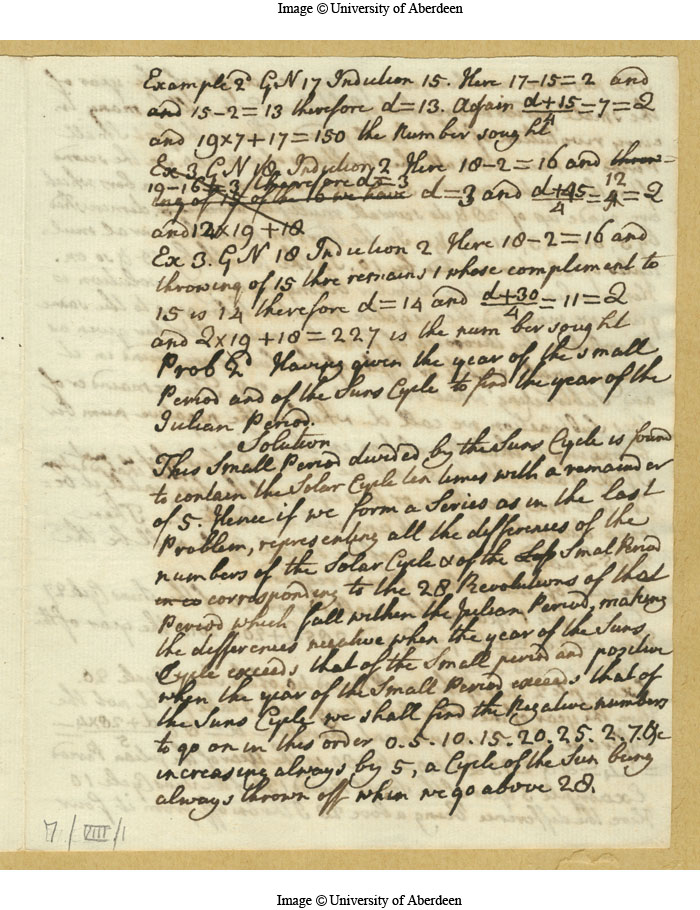 Image © University of Aberdeen
Example 2d GN 17 Indiction 15. Here 17-15=2 and
and 15-2=13 therefore d=13. Again d+15/4=7=Q
and 19x7+17=150 the Number sought
Ex 3 GN 18 Indiction 2 Here 18-2=16 and throw-
19-16=3 / therefore d=3
ing of 15 of the 16 we have d=3 and d+45/4=12=Q
and 12x19+18
Ex 3. GN 18 Indiction 2 Here 18-2=16 and
throwing of 15 thre remains 1 whose complement to
15 is 14 therefore d=14 and d+30/4=11=Q
and Qx19+18=227 is the num ber sought
Prob 2d Having given the year of the small
Period and of the Suns Cycle to find the year of the
Julian Period.
Solution
This Small Period divided by the Suns Cycle is found
to contain the Solar Cycle ten times with a remainder
of 5. Hence if we form a Series as in the last
Problem, representing all the differences of the
numbers of the Solar Cycle & of the Smal Period
corresponding to the 28 Revolutions of that
Period which fall within the Julian Period, making
the differences negative when the year of the Suns
Cycle exceeds that of the Small period and positive
when the year of the Small Period exceeds that of
the Suns Cycle we shall find the Negative numbers
to go on in this order 0.5.10.15.20.25.2.7.&c
increasing always by 5, a Cycle of the Sun being
always thrown off when we go above 28.
7/VIII/1
Image © University of Aberdeen